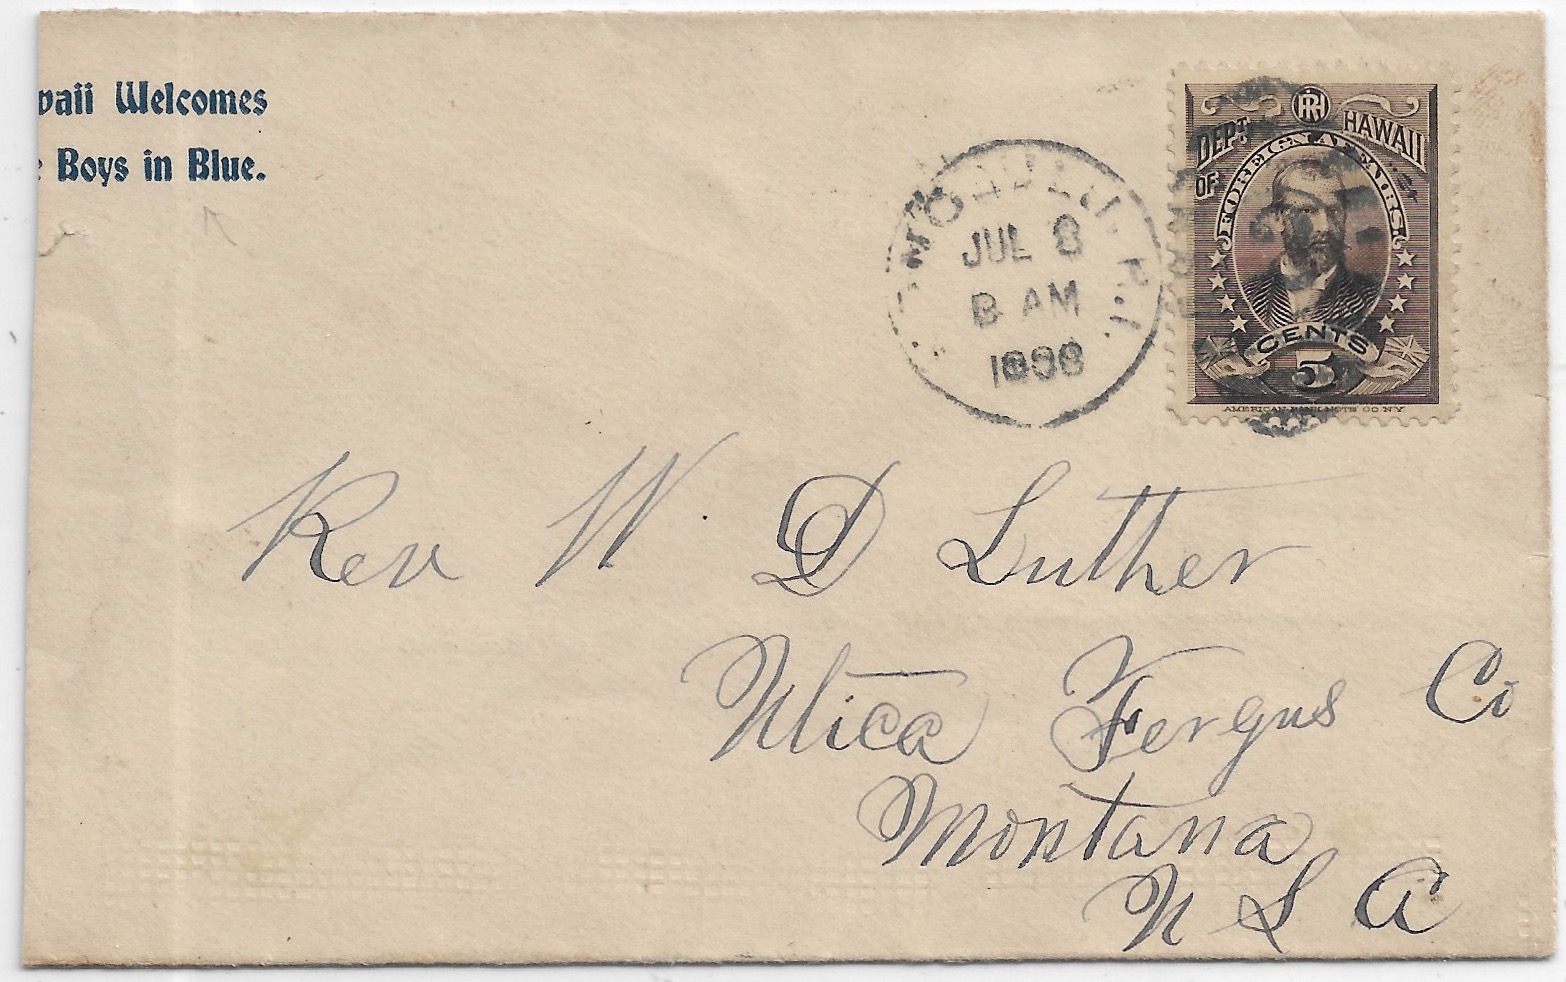 waii Welcomes
e Boys in Blue.
HONOLULU. H.I.
JUL 8
8 AM
1898
RH
DEPT HAWAII
OF
FOREIGN AFFAIRS.
CENTS
5
AMERICAN BANK NOTE CO NY
Rev W. D Luther
Utica Fergus Co
Montana
U S A